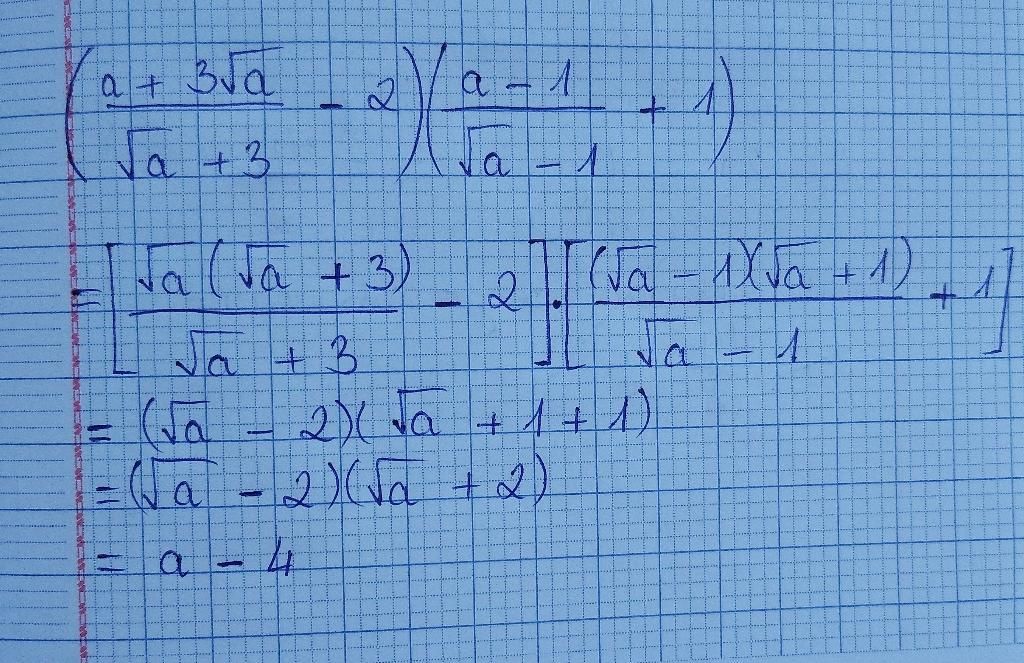 ((a + 3√a)/(√a + 3) - 2)((a - 1)/(√a - 1) + 1)
= [(√a(√a + 3))/(√a + 3) - 2]·[((√a - 1)(√a + 1))/(√a - 1) + 1]
= (√a - 2)(√a + 1 + 1)
= (√a - 2)(√a + 2)
= a - 4